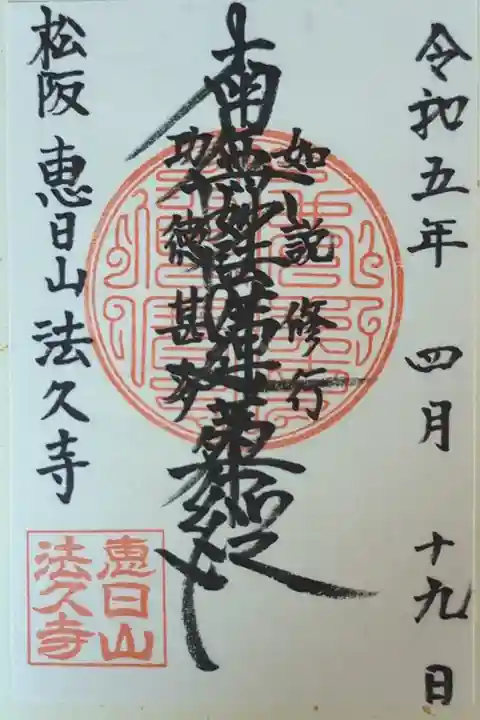 令和五年 四月 十九日
如説修行
南無妙法蓮華経
功徳甚多
松阪 恵日山 法久寺
恵日山
法久寺